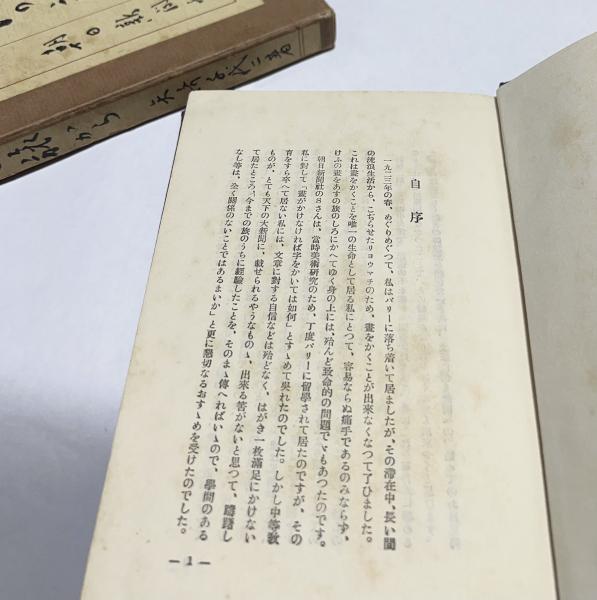 自序
一九二三年の春、めぐりめぐつて、私はパリーに落ち着いて居ましたが、その滯在中、長い間
の流浪生活から、こぢらせたリョウマチのため、畫をかくことが出來なくなつて了ひました。
これは畫をかくことを唯一の生命として居る私にとつて、容易ならぬ痛手であるのみならず、
けふの畫をあすの旅のしろにかへてゆく身の上には、殆んど致命的の問題でゝもあつたのです。
朝日新聞社のSさんは、當時美術研究のため、丁度パリーに留學されて居たのですが、その
私に對して「畫がかけなければ字をかいては如何」とすゝめて呉れたのでした。しかし中等教
育をすら卒へて居ない私には、文章に對する自信などは殆どなく、はがき一枚滿足にかけない
ものが、とても天下の大新聞に、載せられるやうなものゝ、出來る筈がないと思つて、躊躇し
て居たところ「今までの旅のうちに經驗したことを、そのまゝ傳へればいゝので、學問のある
なし等は、全く關係のないことではあるまいか」と更に懇切なるおすゝめを受けたのでした。
— 1 —
朝日新
から